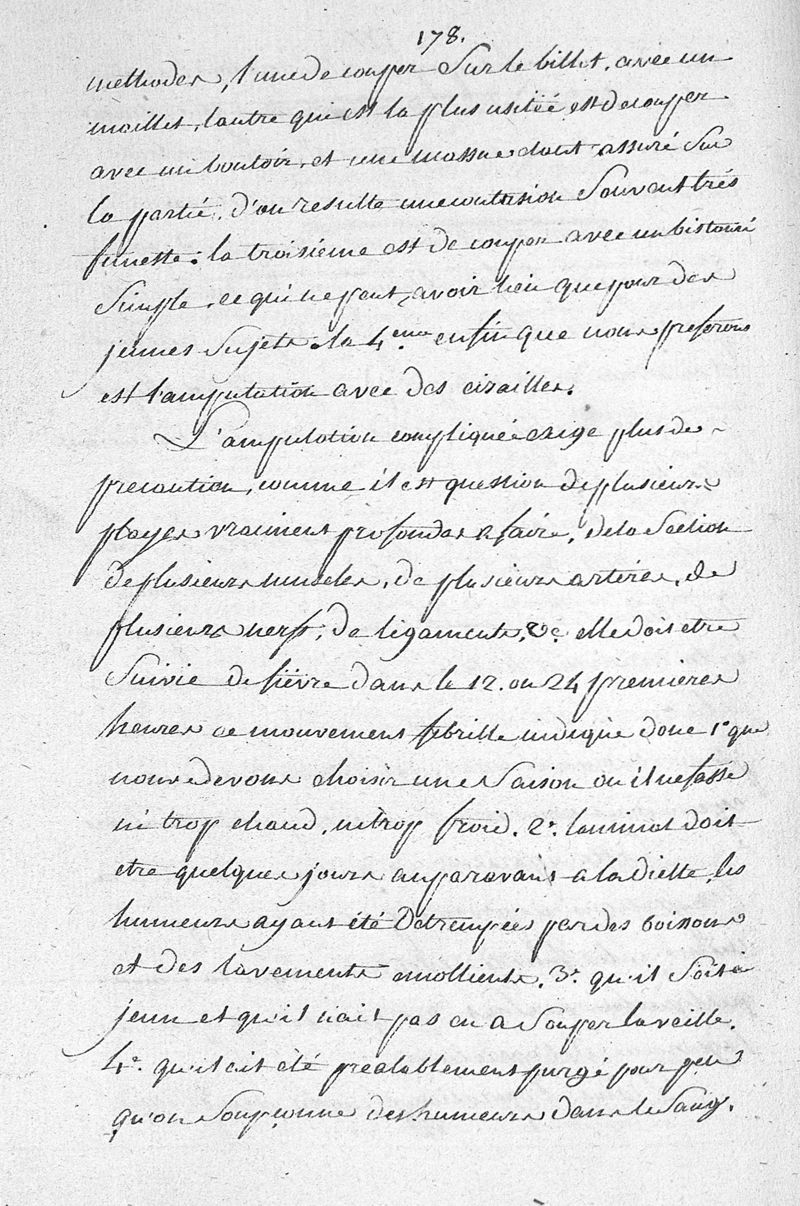 178.
methodes, l'une de couper Sur le billot, avec un
maillet, lautre qui est la plus usitéé est de couper
avec un boutoir, et une massue dont assuré Sur
la partié, d'ou resulte une contusion Souvent trés
funeste: la troisiéme est de couper avec un bistouri
Simple, ce qui ne peut avoir lieu que pour des
jeunes Sujets. la 4.eme enfin que nous preferons
est l'amputation avec des cizailles.
L'amputation compliqueé exige plus de
precaution, comme il est question de plusieurs
playes vraiment profondes a faire, de la Section
de plusieurs muscles, de plusieurs artères, de
plusieurs nerfs, de ligaments, &c. elle doit etre
Suivie de fiévre dans le 12. ou 24 premieres
heures ce mouvement febrille indique donc 1° que
nous devons choisir une Saison ou il ne fasse
ni trop chaud, ni trop froid. 2°. lanimal doit
etre quelques jours auparavant a la diette, les
humeurs ayant été Detrempées par des boissons
et des lavements emollients. 3°. qu'il Soit a
jeun et qu'il n'ait pas eu a Souper la veille.
4°. qu'il ait été prealablement purgé pour peu
qu'on Soupçonne des humeurs dans le Sang.